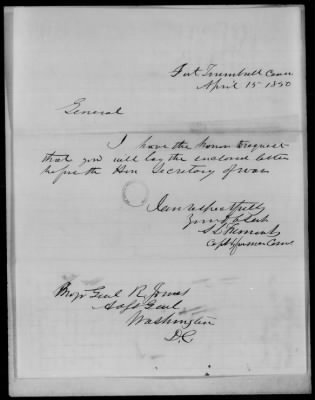 Fort Trumbull Conn
April 15 1850
General
I have the honor to request
that you will lay the enclosed letter
before the Hon Secretary of war
I am respectfully
Your Ob Sert
Capt
Genl R Jones
Adjt Genl
Washington
D.C.